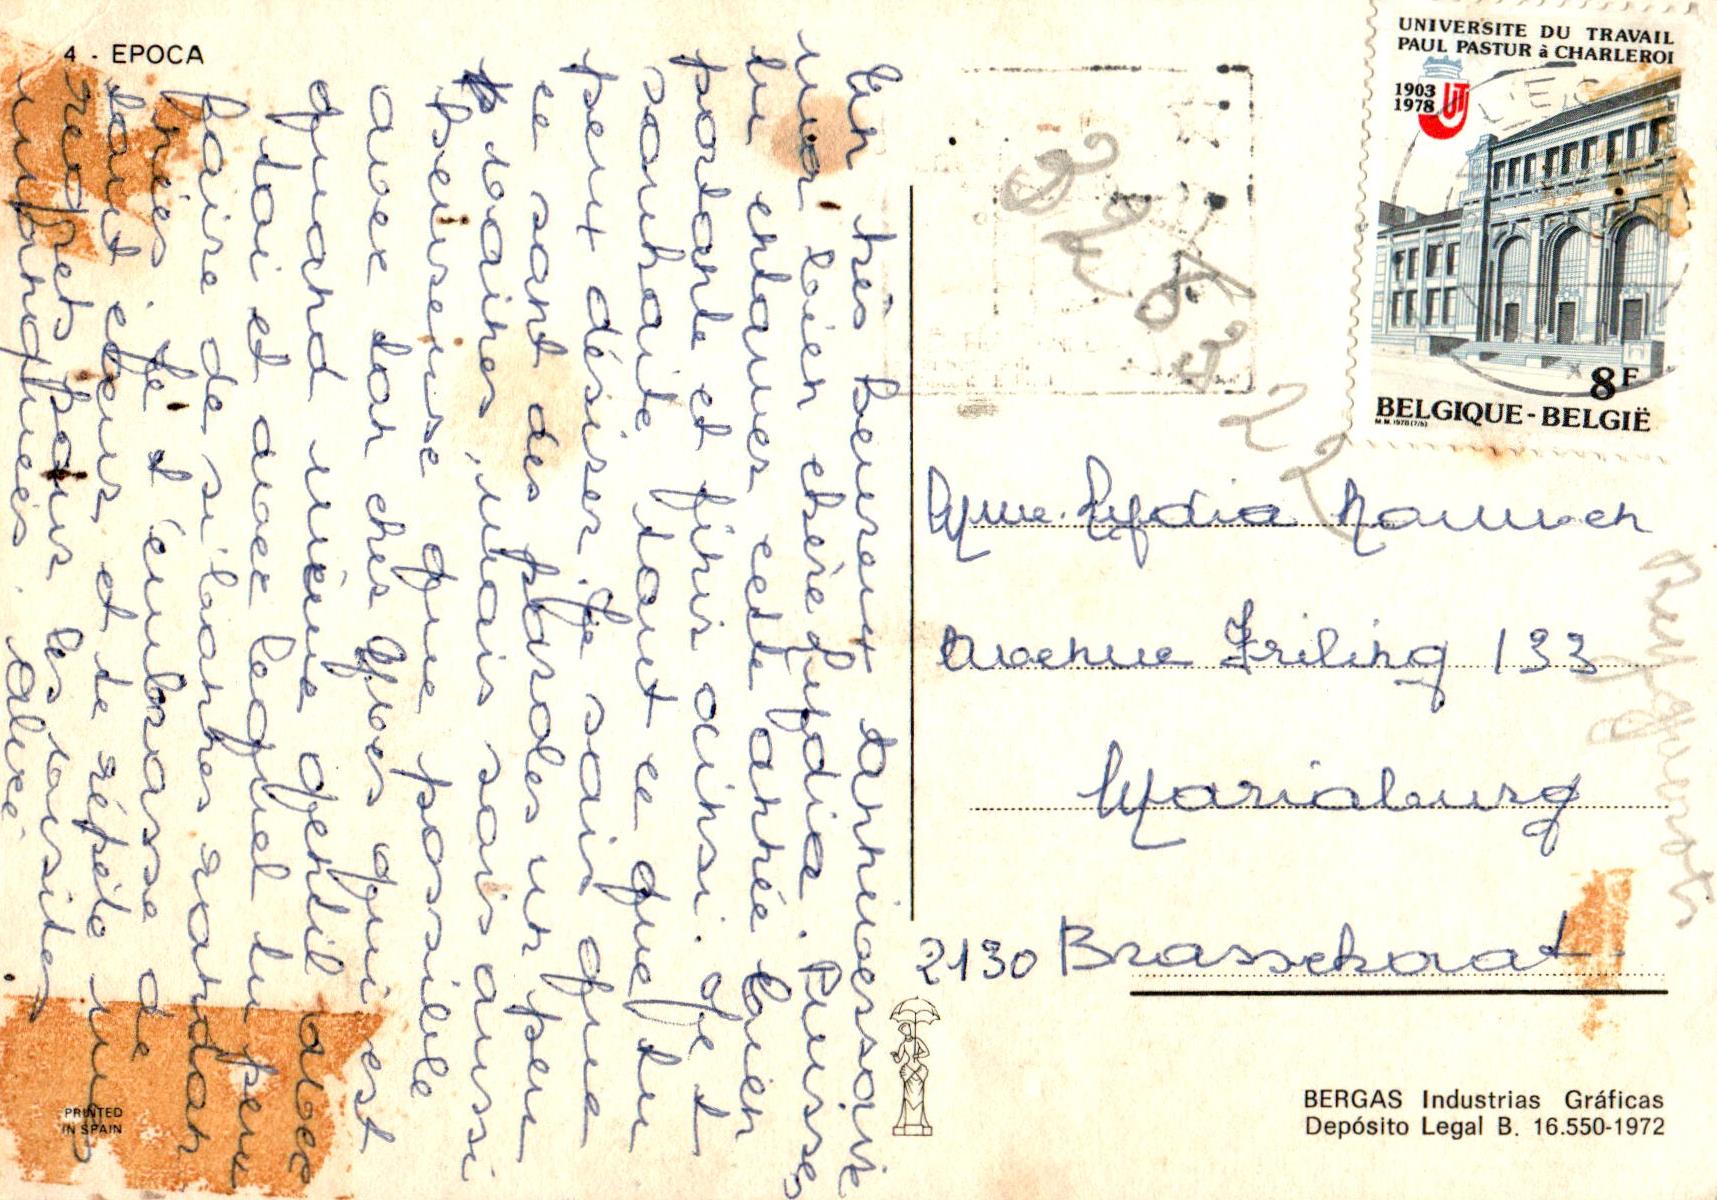 4 - EPOCA
Un très heureux anniversaire
ma bien chère Lydia. Puisses
tu entamer cette année bien
portante et finir ainsi. Je t
souhaite tout ce que tu
peux désirer. Je sais que
ce sont des paroles un peu
vaines, mais sois aussi
heureuse que possible
avec ton cher Yves qui est
quand même gentil avec
toi et avec lequel tu peux
faire de si bonnes randon
nées. Je t'embrasse de
tout cœur et te répète mes
regrets pour les visites
manquées. Alice.
PRINTED
IN SPAIN
UNIVERSITE DU TRAVAIL
PAUL PASTUR à CHARLEROI
1903
1978
UT
8F
BELGIQUE-BELGIË
M.M. 1978 (7/b)
Mme. Lydia
Avenue Friling 133
Mariaburg
2130 Brasschaat.
BERGAS Industrias Gráficas
Depósito Legal B. 16.550-1972